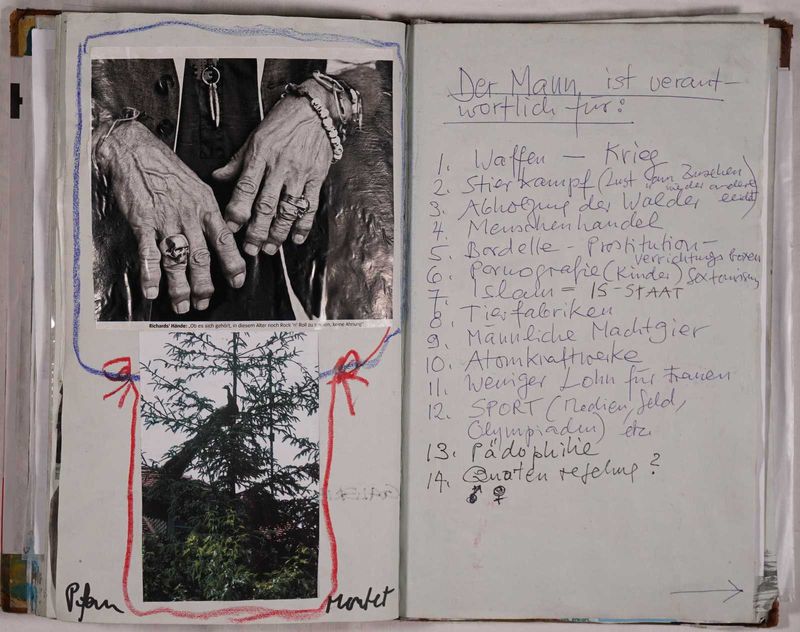 Richards' Hände: „Ob es sich gehört, in diesem Alter noch Rock 'n' Roll zu machen, keine Ahnung"
Der Mann ist verant-
wortlich für:
1. Waffen – Krieg
2. Stierkampf (Lust beim Zusehen
wie der andere
leidet)
3. Abholzung der Wälder
4. Menschenhandel
5. Bordelle – Prostitution –
Verrichtungsboxen
6. Pornografie (Kinder) Sextourismus
7. Islam = IS-STAAT
8. Tierfabriken
9. Männliche Machtgier
10. Atomkraftwerke
11. Weniger Lohn für Frauen
12. SPORT (Medien, Geld,
Olympiaden) etc.
13. Pädophilie
14. Quotenregelung?
♂ ♀